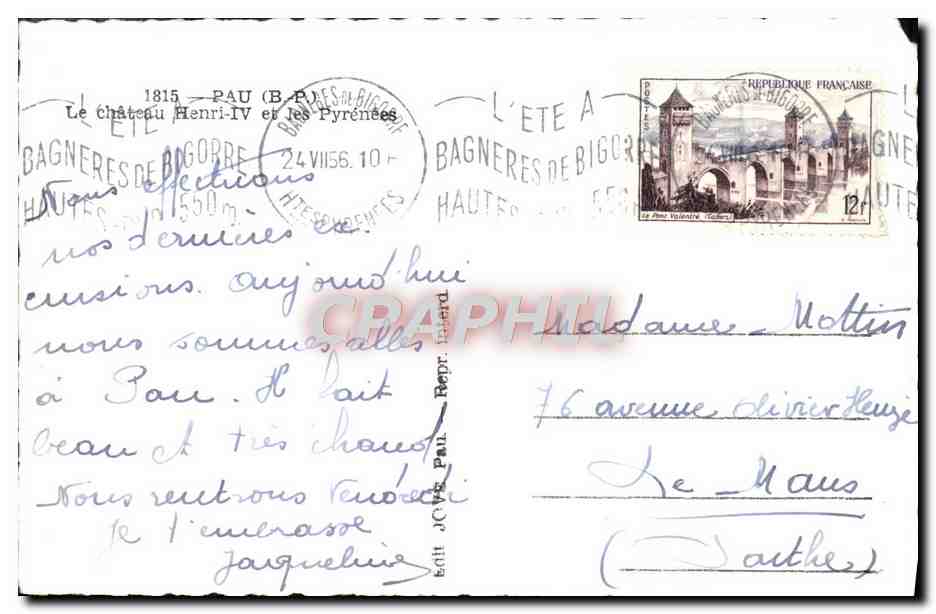 1815 — PAU (B.-P.)
Le château Henri-IV et les Pyrénées
L'ÉTÉ A
BAGNERES DE BIGORRE
HAUTES 550m
BAGNERES-DE-BIGORRE
24 VII 56. 10
HTES PYRENEES
L'ÉTÉ A
BAGNERES DE BIGORR
HAUTES 55
HAUTES
POSTES
REPUBLIQUE FRANÇAISE
Le Pont Valentré (Cahors)
12f
Nous effectuons
nos dernières ex-
cursions. Aujourd'hui
nous sommes allés
à Pau. Il fait
beau et très chaud
Nous rentrons Vendredi
Je t'embrasse
Jacqueline
Edit JOVE Pau. — Repr. interd.
CRAPHIL
Madame Mottin
76 avenue Olivier Heuzé
Le Mans
(Sarthe)